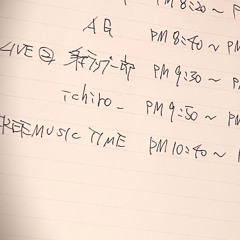 PM 8:20 ~ P
AG PM 8:40 ~ PM
LIVE② PM 9:30 ~ P
ichiro_ PM 9:50 ~ PM
REEMUSIC TIME PM 10:40 ~